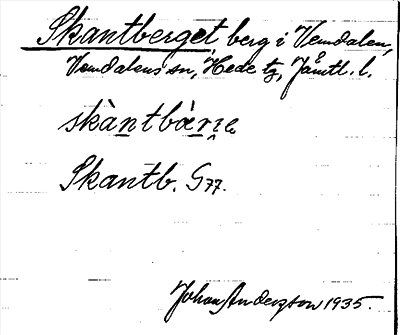 Skantberget, berg i Vemdalen,
Vemdalens sn, Hede tg, Jämtl. l.
skàntbær̀
Skantb. G77.
Johan Anderzson 1935.